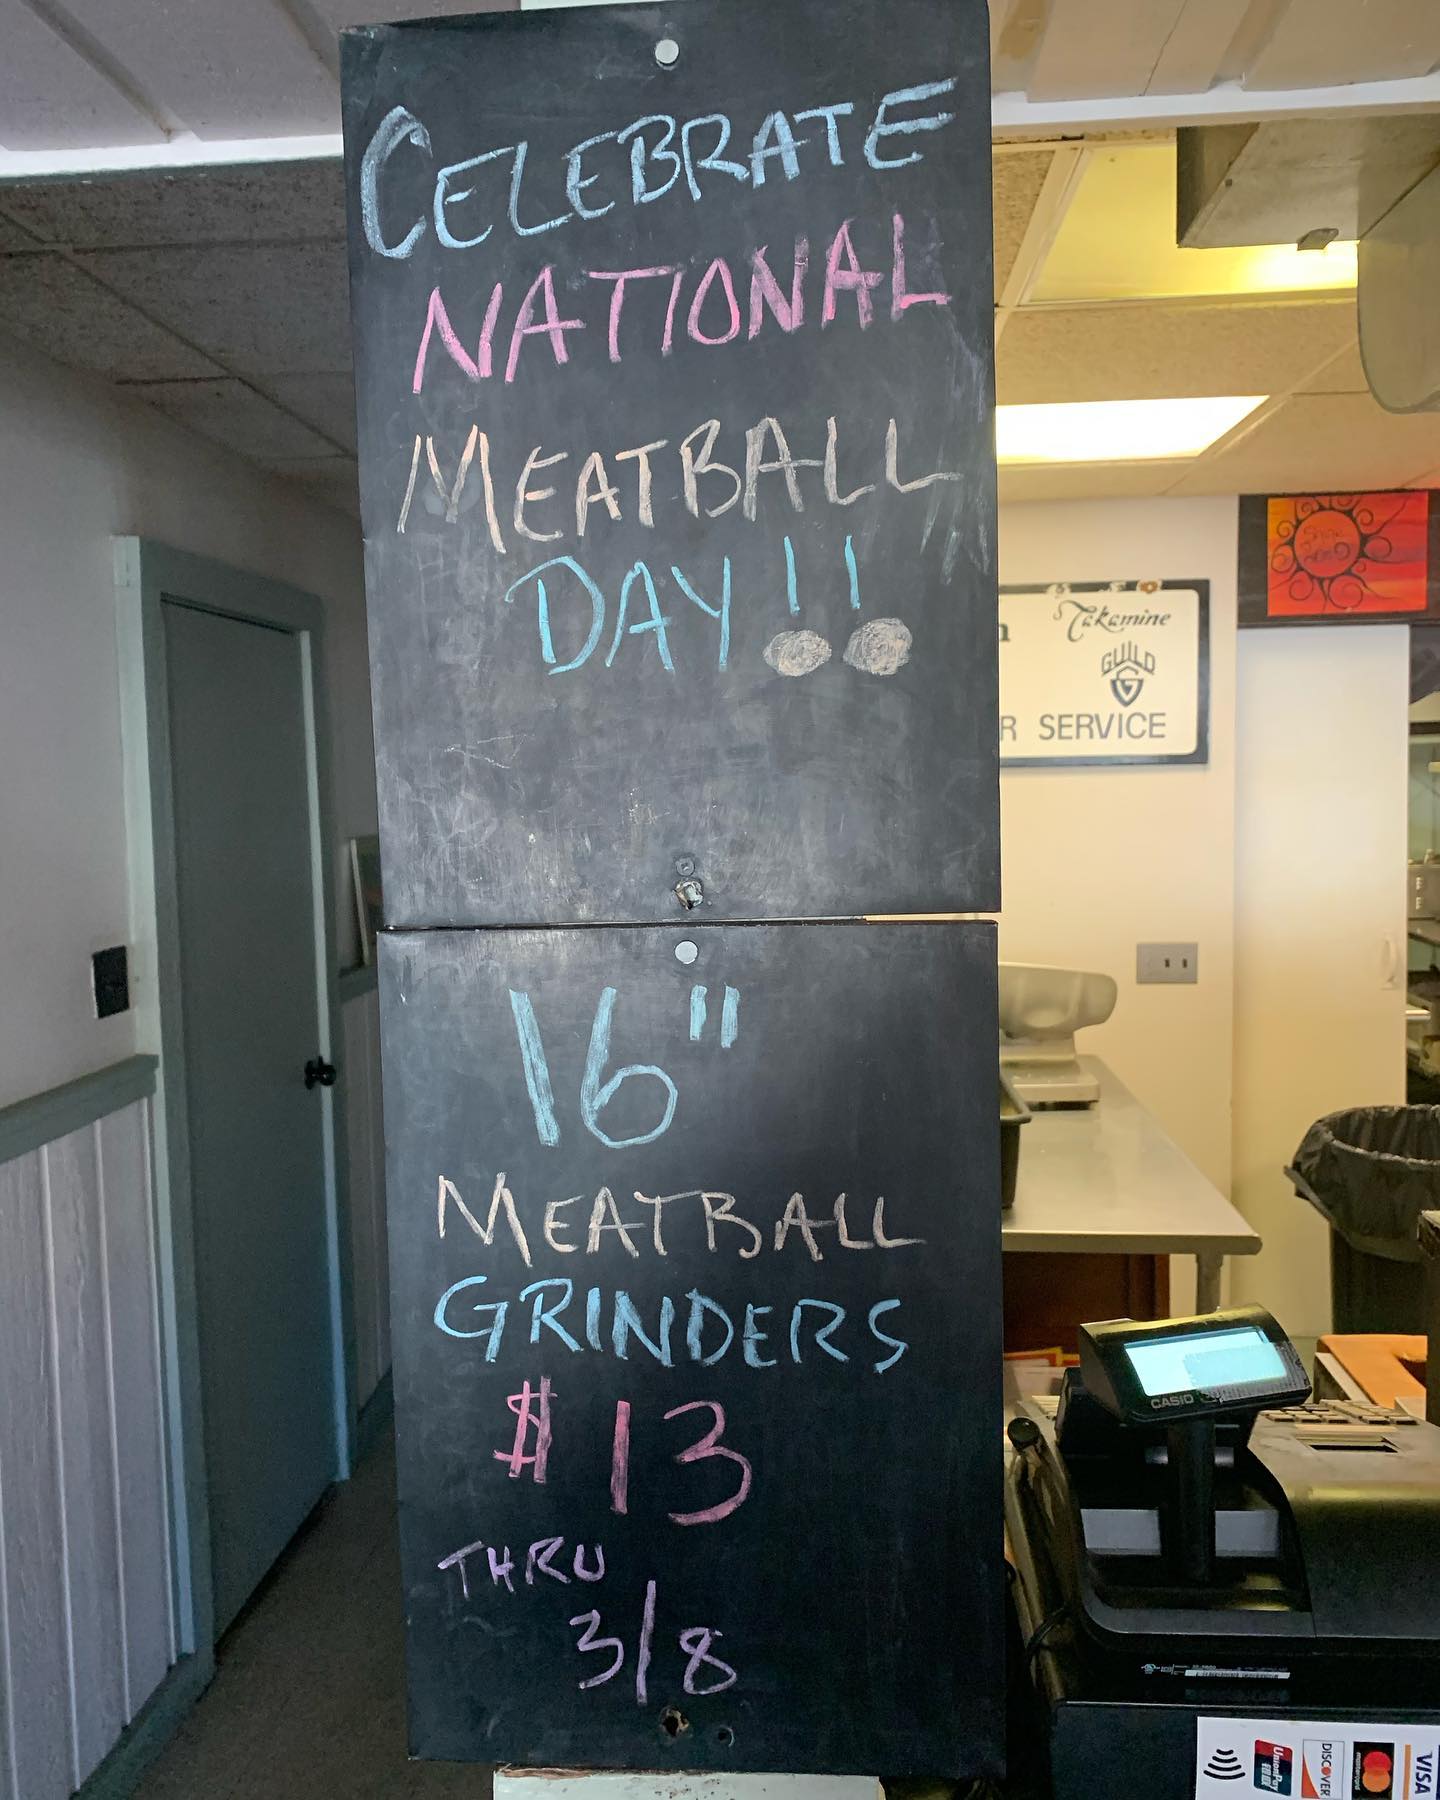 CELEBRATE
NATIONAL
MEATBALL
DAY!!
16"
MEATBALL
GRINDERS
$13
THRU
3/8
Takamine
GUILD
G
R SERVICE
CASIO
UnionPay
DISCOVER
mastercard
VISA